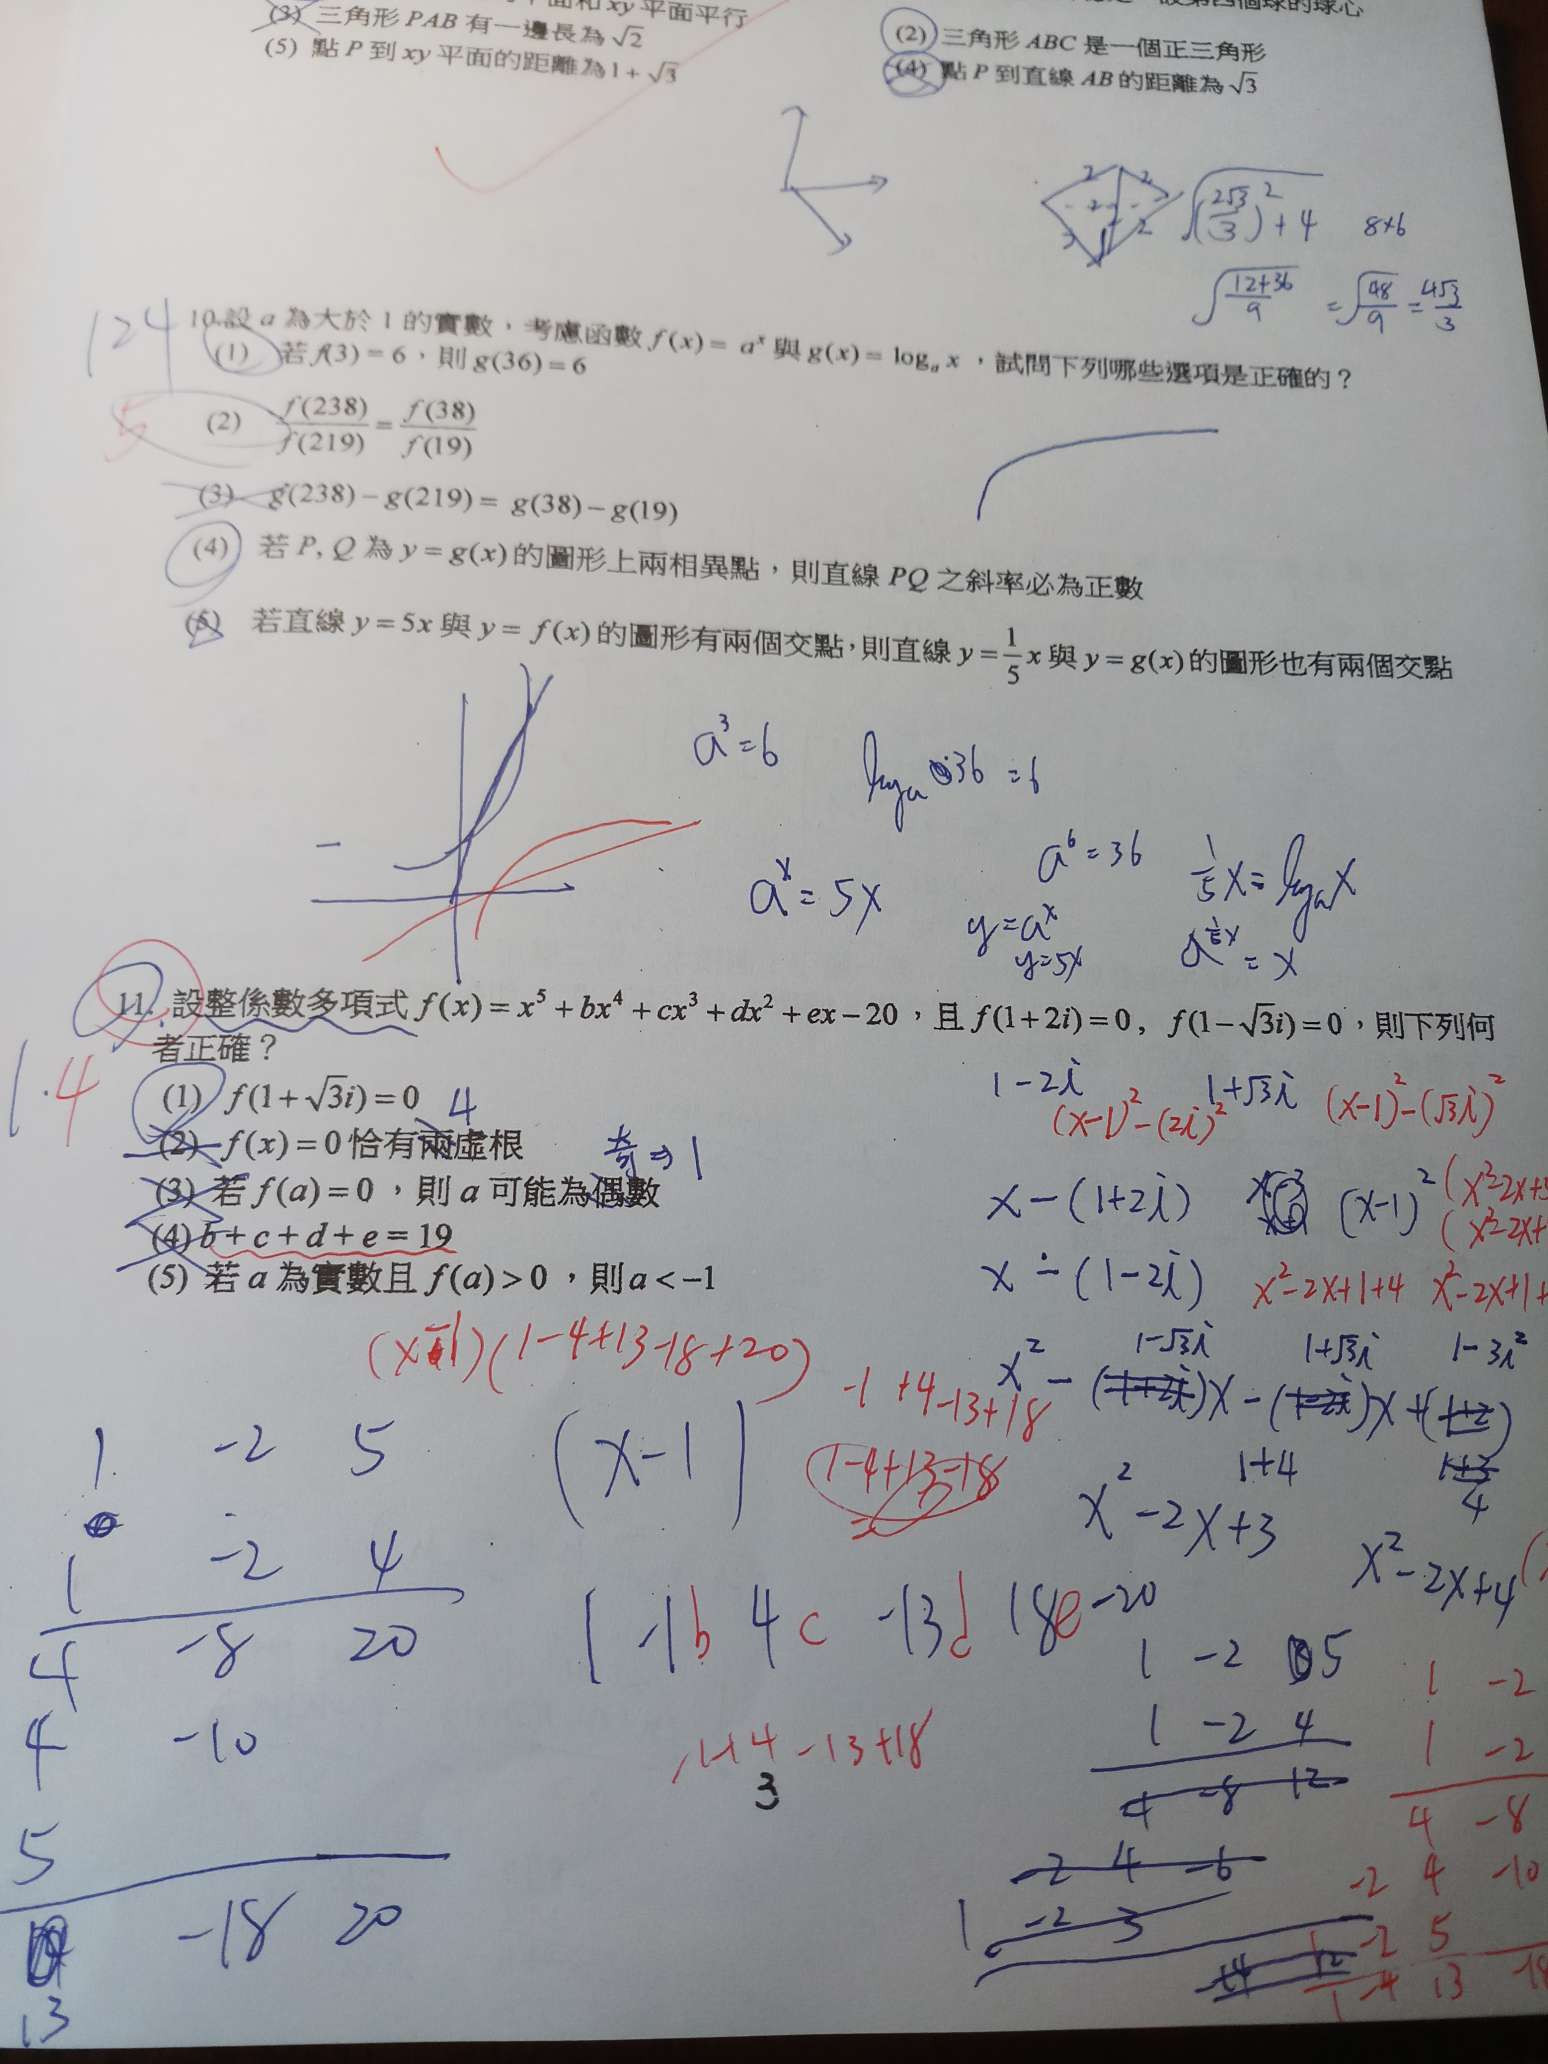 平面和 xy 平面平行
(3) 三角形 PAB 有一邊長為 √2
(5) 點 P 到 xy 平面的距離為 1 + √3
設第四個球的球心
(2) 三角形 ABC 是一個正三角形
(4) 點 P 到直線 AB 的距離為 √3
2 2
2
3 2
√(2√3/3)² + 4 8×6
√(12+36)/9 = √48/9 = 4√3/3
124
5
10. 設 a 為大於 1 的實數，考慮函數 f(x) = aˣ 與 g(x) = logₐ x ，試問下列哪些選項是正確的？
(1) 若 f(3) = 6，則 g(36) = 6
(2) f(238)/f(219) = f(38)/f(19)
(3) g(238) − g(219) = g(38) − g(19)
(4) 若 P, Q 為 y = g(x) 的圖形上兩相異點，則直線 PQ 之斜率必為正數
(5) 若直線 y = 5x 與 y = f(x) 的圖形有兩個交點，則直線 y = 1/5 x 與 y = g(x) 的圖形也有兩個交點
a³ = 6
logₐ 36 = 6
a⁶ = 36
1/5 x = logₐ x
aˣ = 5x
y = aˣ
y = 5x
a^(1/5 x) = x
11. 設整係數多項式 f(x) = x⁵ + bx⁴ + cx³ + dx² + ex − 20，且 f(1+2i) = 0, f(1−√3i) = 0，則下列何
者正確？
1.4
(1) f(1+√3i) = 0
4
(2) f(x) = 0 恰有兩虛根
奇 ⇒ 1
(3) 若 f(a) = 0 ，則 a 可能為偶數
(4) b + c + d + e = 19
(5) 若 a 為實數且 f(a) > 0 ，則 a < −1
1−2i 1+√3i
(x−1)²−(2i)² (x−1)²−(√3i)²
x−(1+2i)
(x−1)²
(x²−2x+5
(x²−2x+
x−(1−2i)
x²−2x+1+4 x²−2x+1+
(x−1)(1−4+13−18+20)
−1+4−13+18
1−4+13−18
=
1−√3i 1+√3i 1−3i²
x² − ( )x − ( )x + ( )
1+4
1+3
4
x²−2x+3
x²−2x+4
1 −2 5
1 −2 4
4 −8 20
4 −10
5
−18 20
13
(x−1)
1 −1b 4c −13d 18e −20
−1+4−13+18
3
1 −2 5
1 −2 4
4 −8 12
−2 4 −6
1 −2 3
1 −2
1 −2
4 −8
−2 4 −10
1 −2 5
1 −4 13 −18